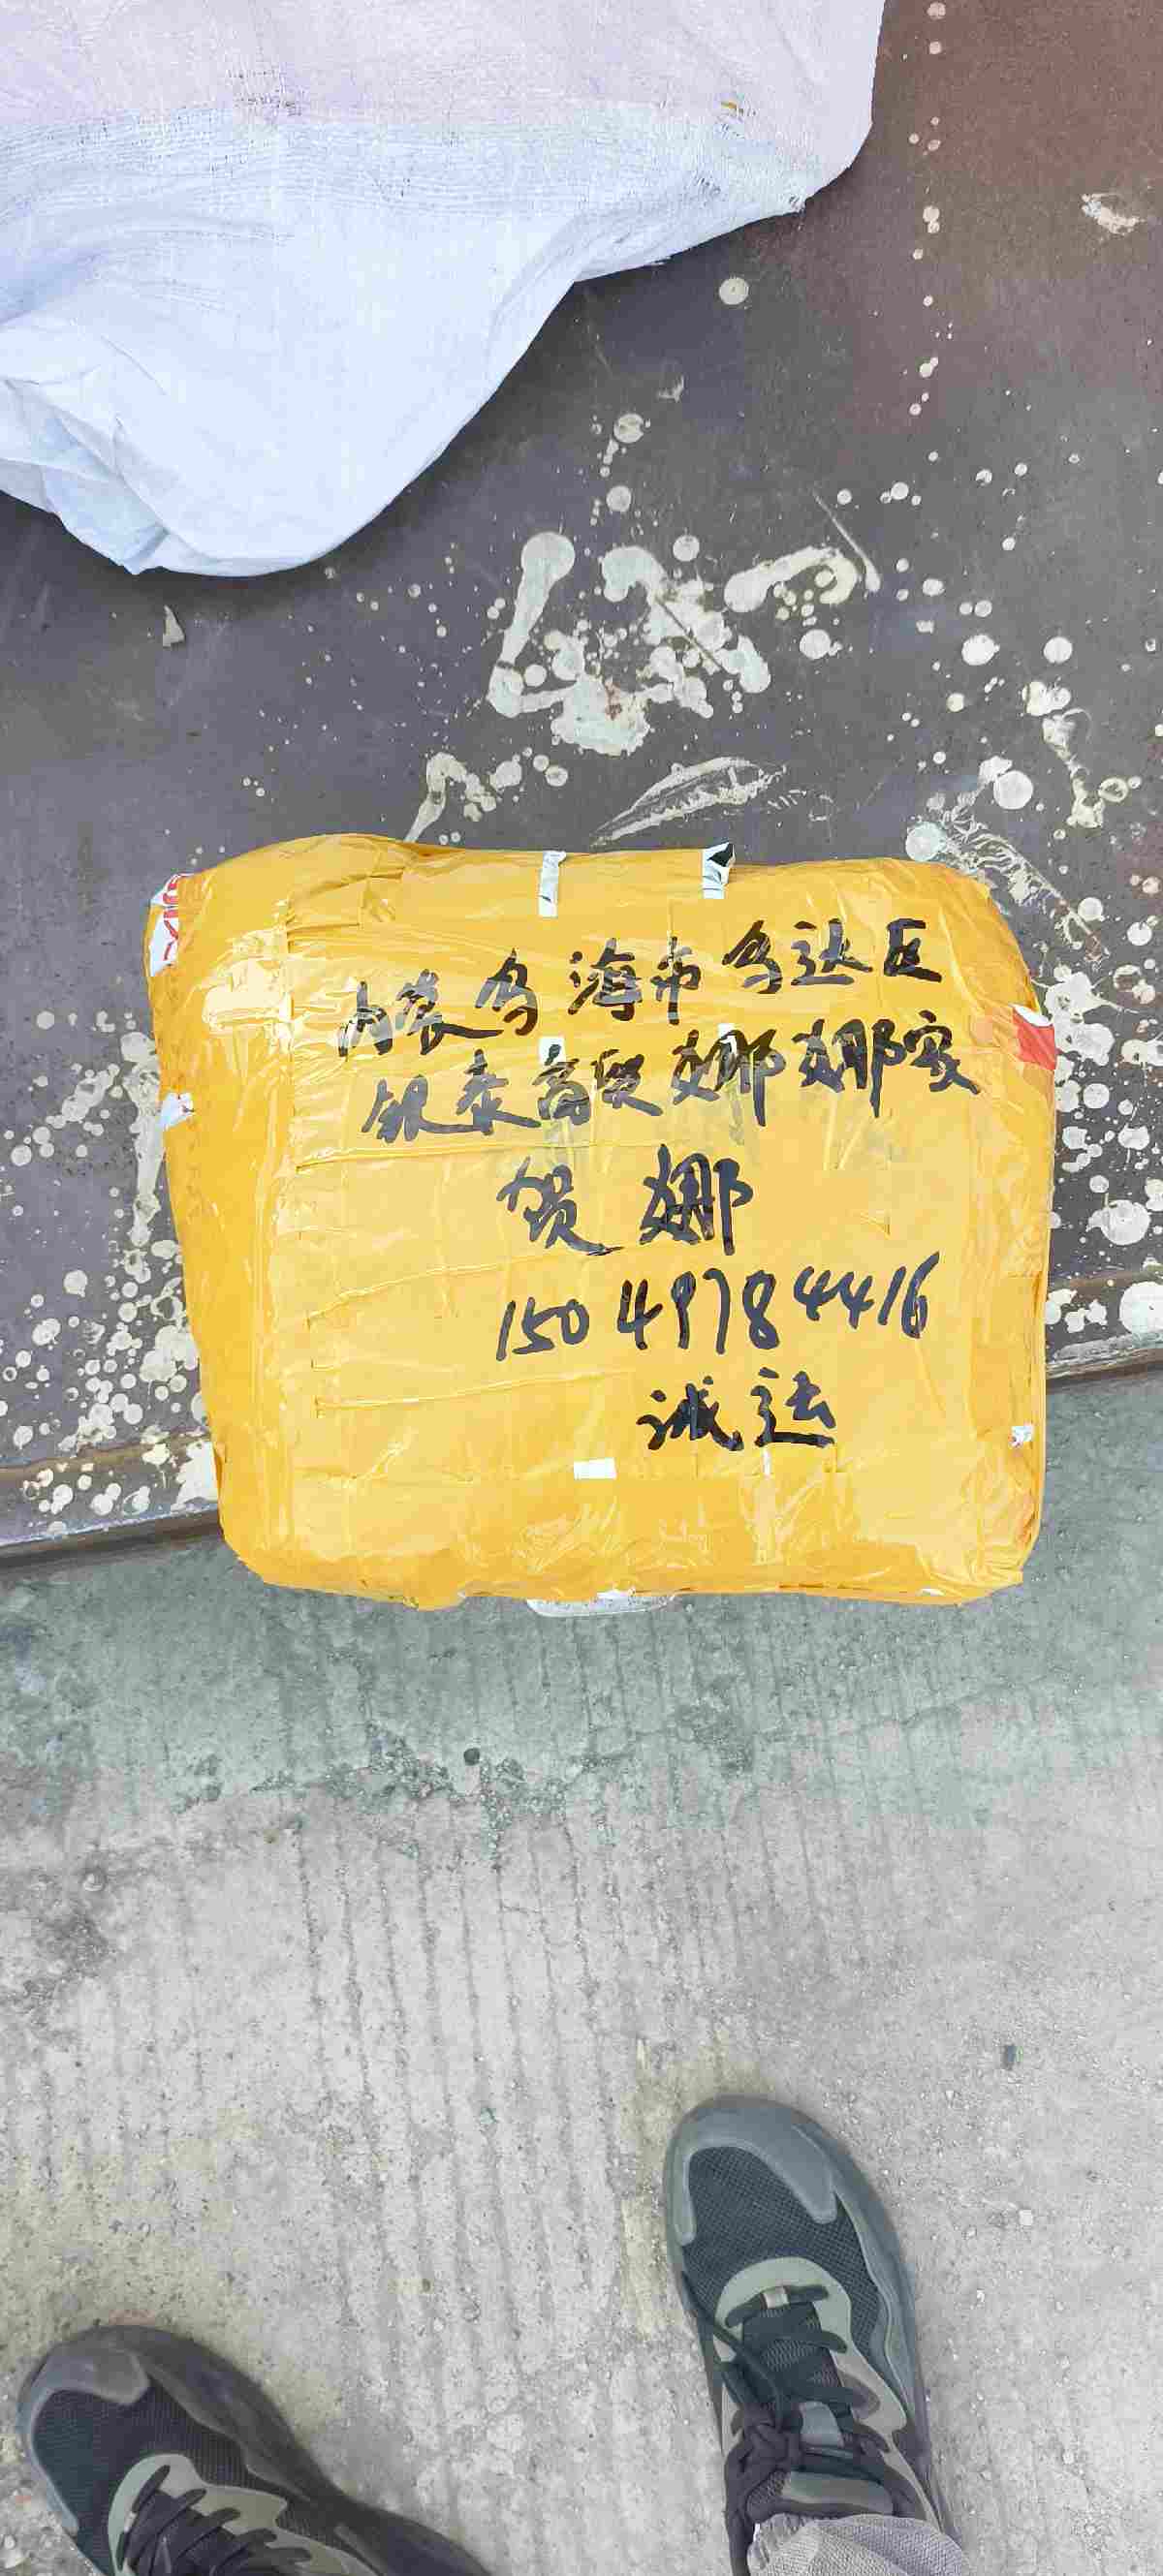 内蒙乌海市乌达区
银泰商贸娜娜家
贺娜
15049784416
诚运